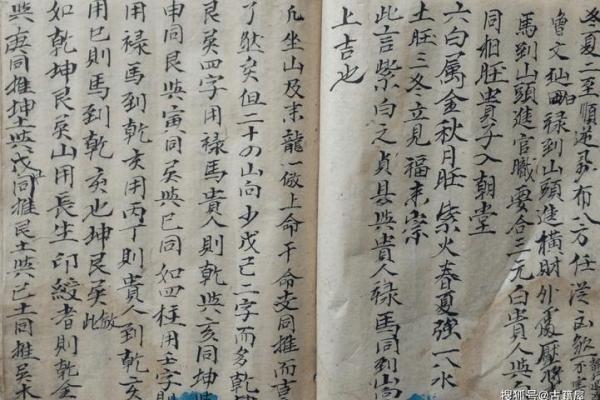 冬夏二至順逆飛布八方任從
曾文辿 祿到山頭進橫財外處
馬到山頭進官職要合三元白貴人與
同相旺貴子入朝堂
六白屬金秋月旺 紫火春夏強 一八水
土旺三冬立見福来崇
此言紫白之貞 與貴人祿馬同到山
上吉也
凡坐山及来龍一倣上命干命支同推而言
了然矣但二十四山向少戊己二字而多乾坤
艮巽四字用祿馬貴人則乾與亥同坤
申同艮與寅同巽與巳同如四柱用壬字則
用祿馬到乾亥用丙丁則貴人到乾亥
用巳則馬到乾亥也坤艮巽倣此
如乾坤艮巽山用長生印綬者則乾金
與庚同推坤土與戊同推艮土與己土同推巽木
搜狐号@古籍屋